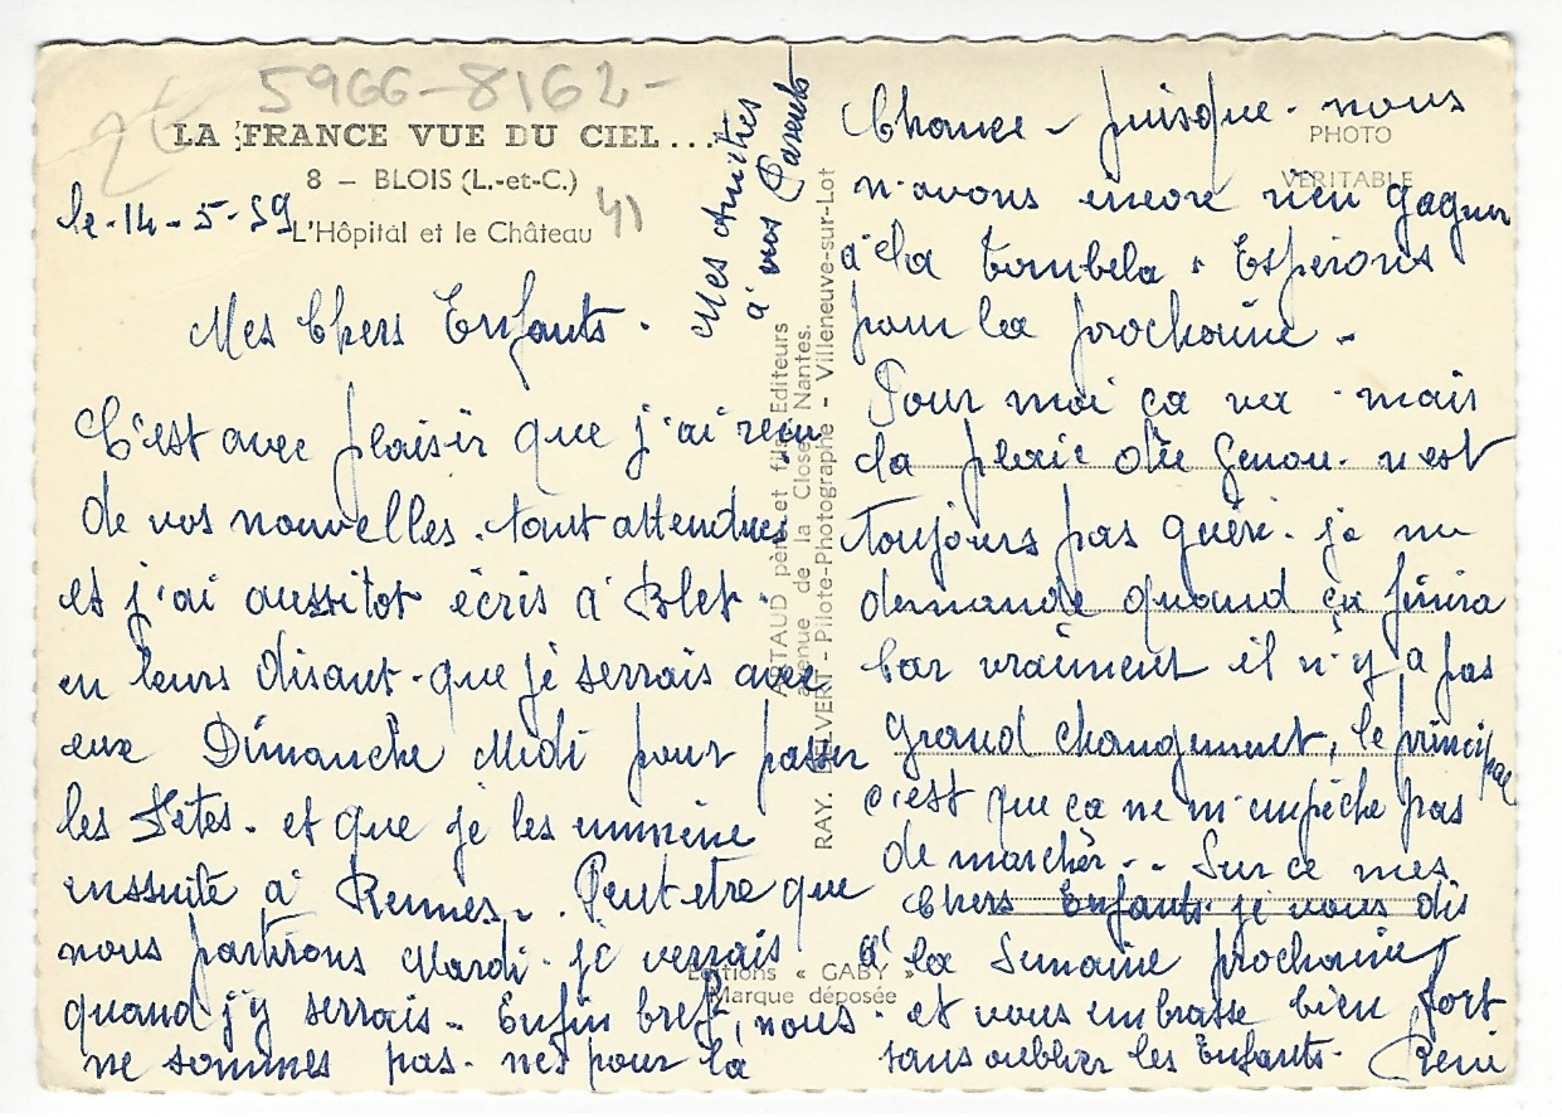 5966-8162-
2€
LA FRANCE VUE DU CIEL...
8 – BLOIS (L.-et-C.)
41
L'Hôpital et le Château
le-14-5-59
Mes Chers Enfants.
C'est avec plaisir que j'ai reçu
de vos nouvelles. tant attendues
et j'ai aussitot écris à Blet.
en leurs disant-que je serrais avec
eux Dimanche Midi pour passer
les Fêtes. et que je les emmène
enssuite à Rennes. Peut etre que
nous partirons Mardi. je verrais
quand j'y serrais.. Enfin bref, nous
ne sommes pas. nés pour la
Mes Amitiés
à vos Parents
ARTAUD père et fils Editeurs
avenue de la Close Nantes.
RAY. DELVERT - Pilote-Photographe - Villeneuve-sur-Lot
Editions « GABY »
Marque déposée
PHOTO
VERITABLE
Chance - puisque. nous
n'avons encore rien gagner
à la tombola. Espérons
pour la prochaine -
Pour moi ça va. mais
la plaie du Genou. n'est
toujours pas guéri. je me
demande quand ça finira
Car vraiment il n'y a pas
grand changement, le principal
c'est que ça ne m'empêche pas
de marcher.. Sur ce mes
Chers Enfants. je vous dis
à la Semaine prochaine
et vous embrasse bien fort
sans oublier les Enfants. René